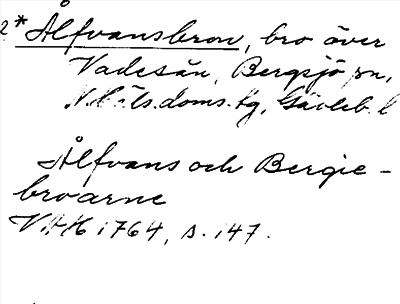 2 * Ålfvansbron, bro över
Vadesån, Bergsjö sn,
N. Häls. doms. tg, Gävleb. l
Ålfvans och Bergie-
broarne
VAH 1764, s. 147.